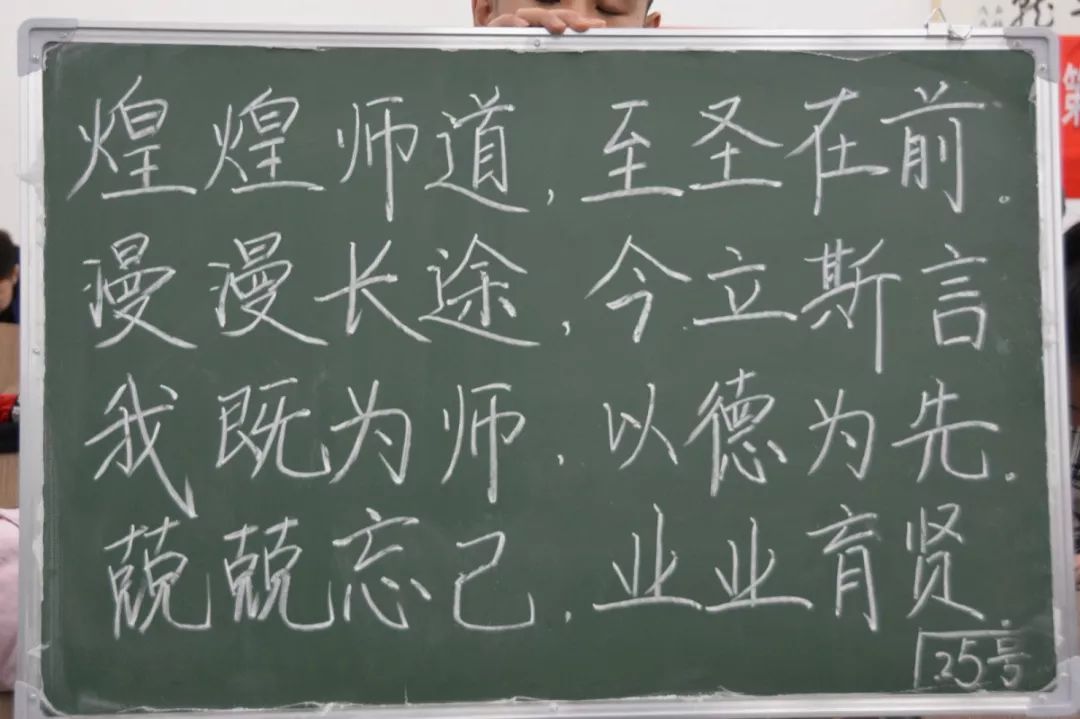 煌煌师道,至圣在前.
漫漫长途,今立斯言
我既为师,以德为先.
兢兢忘己,业业育贤
25号
第